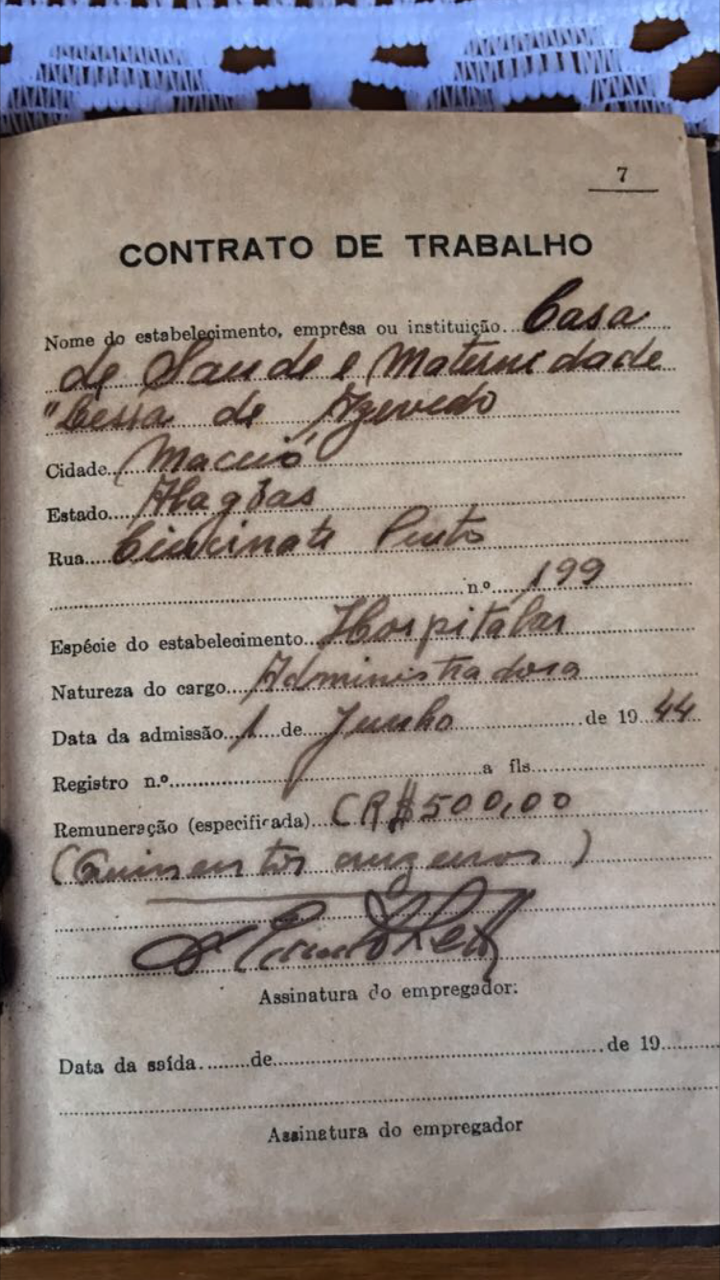 7
CONTRATO DE TRABALHO
Nome do estabelecimento, emprêsa ou instituição...Casa
de Saude e Maternidade
"Lessa de Azevedo
Cidade...Maceió
Estado...Alagôas
Rua...Cincinato Pinto
n.º...199
Espécie do estabelecimento...Hospitalar
Natureza do cargo...Administradora
Data da admissão...1...de...Junho...de 19...44
Registro n.º...a fls...
Remuneração (especificada)...CR$500,00
(Quinhentos cruzeiros)
Assinatura do empregador:
Data da saída...de...de 19...
Assinatura do empregador